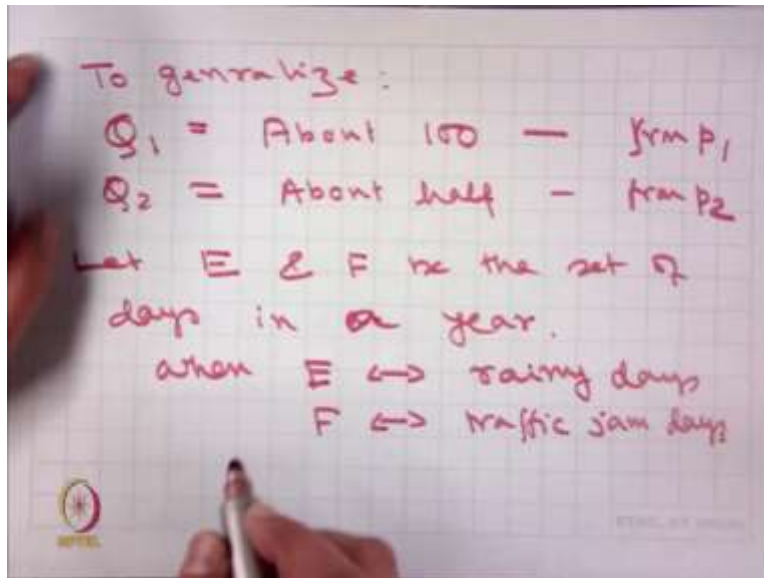 To genralize:
Q1 = About 100 — from P1
Q2 = About half - from P2
Let E & F be the set of
days in a year.
when E <-> rainy days
F <-> traffic jam days
NPTEL